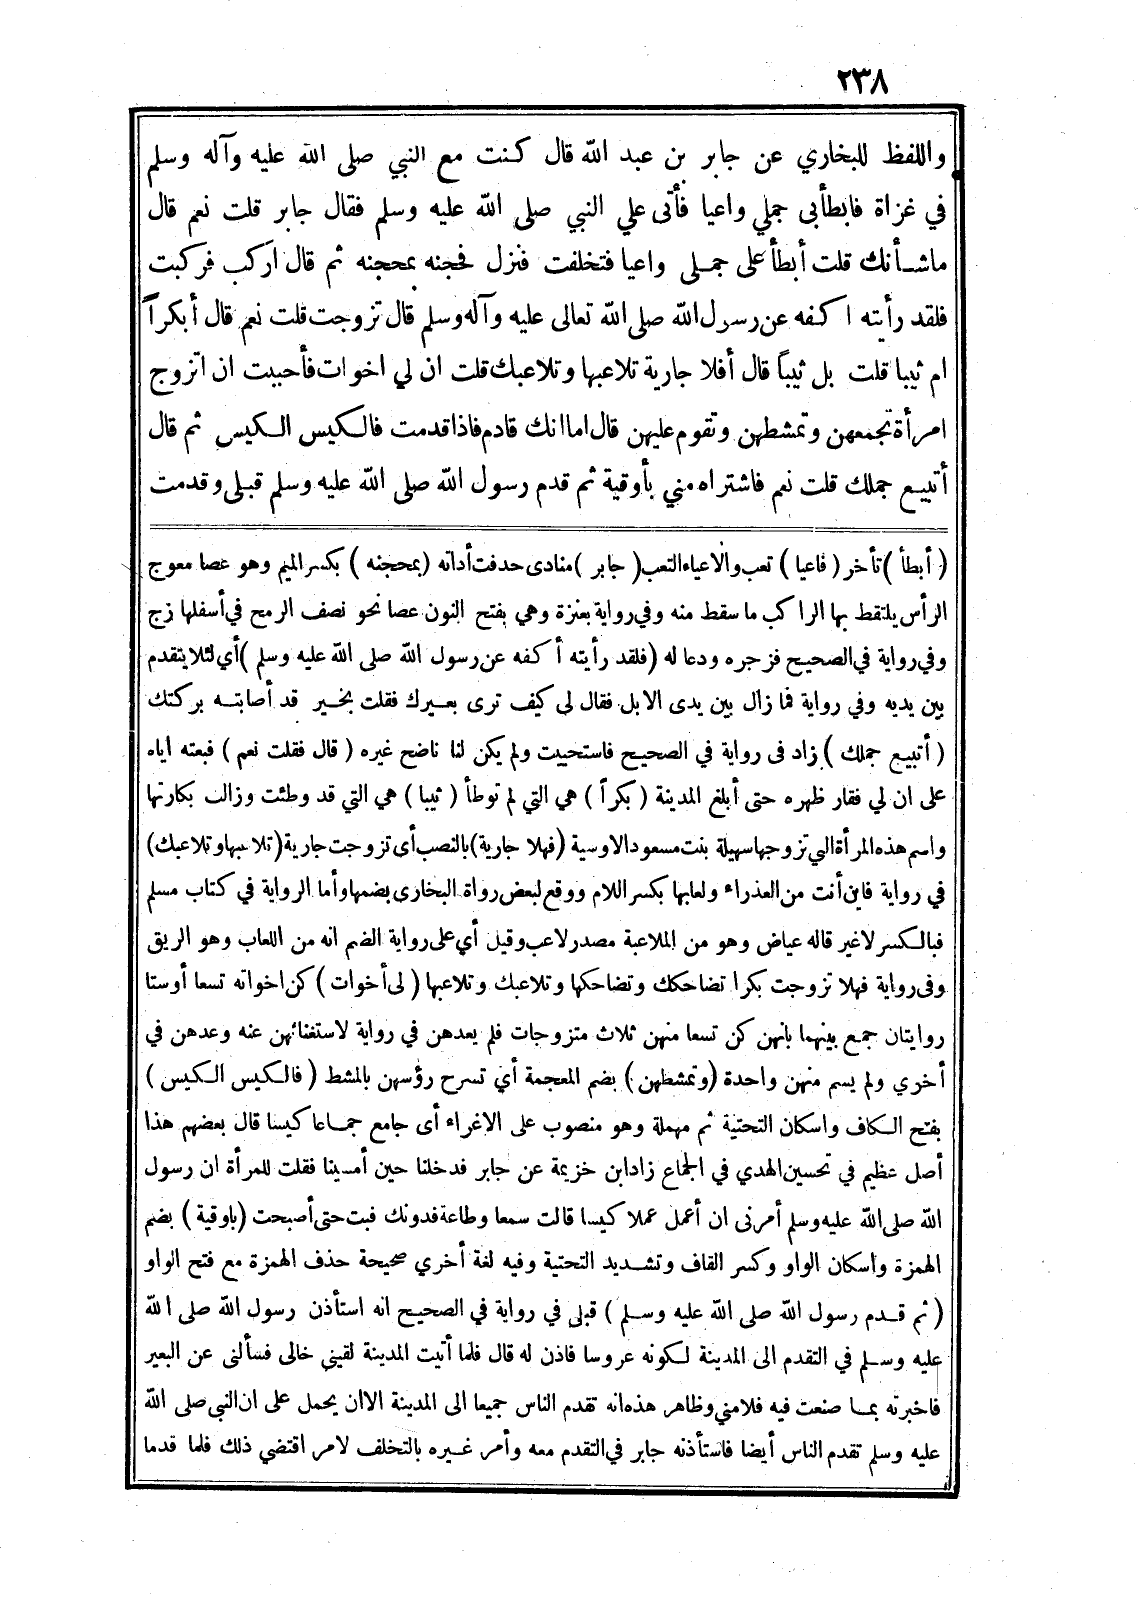 ٢٣٨
واللفظ للبخاري عن جابر بن عبد الله قال كنت مع النبي صلى الله عليه وآله وسلم
في غزاة فابطأبى جملي واعيا فأتى علي النبي صلى الله عليه وسلم فقال جابر قلت نعم قال
ماشأنك قلت أبطأ على جملى واعيا فتخلفت فنزل فحجنه بمحجنه ثم قال اركب فركبت
فلقد رأيته اكفه عن رسول الله صلى الله تعالى عليه وآله وسلم قال تزوجت قلت نعم قال أبكراً
ام ثيبا قلت بل ثيباً قال أفلا جارية تلاعبها وتلاعبك قلت ان لي اخوات فأحببت ان اتزوج
امرأة تجمعهن وتمشطهن وتقوم عليهن قال اما انك قادم فاذا قدمت فالكيس الكيس ثم قال
أتبيع جملك قلت نعم فاشتراه مني بأوقية ثم قدم رسول الله صلى الله عليه وسلم قبلى وقدمت
( أبطأ ) تأخر ( فاعيا ) تعب والاعياء التعب ( جابر ) منادى حدفت أداته ( بمحجنه ) بكسر الميم وهو عصا معوج
الرأس يلتقط بها الراكب ما سقط منه وفي رواية بعنزة وهي بفتح النون عصا نحو نصف الرمح في أسفلها زج
وفي رواية في الصحيح فزجره ودعا له ( فلقد رأيته أكفه عن رسول الله صلى الله عليه وسلم ) أي لئلا يتقدم
بين يديه وفي رواية فما زال بين يدى الابل فقال لى كيف ترى بعيرك فقلت بخير قد أصابته بركتك
( أتبيع جملك ) زاد فى رواية في الصحيح فاستحييت ولم يكن لنا ناضح غيره ( قال فقلت نعم ) فبعته اياه
على ان لي فقار ظهره حتى أبلغ المدينة ( بكراً ) هي التي لم توطأ ( ثيبا ) هي التي قد وطئت وزالت بكارتها
واسم هذه المرأة التي تزوجها سهيلة بنت مسعود الاوسية ( فهلا جارية ) بالنصب أى تزوجت جارية ( تلاعبها وتلاعبك )
في رواية فاين أنت من العذراء ولعابها بكسر اللام ووقع لبعض رواة البخارى بضمها وأما الرواية في كتاب مسلم
فبالكسر لاغير قاله عياض وهو من الملاعبة مصدر لاعب وقيل أي على رواية الضم انه من اللعاب وهو الريق
وفى رواية فهلا تزوجت بكرا تضاحكك وتضاحكها وتلاعبك وتلاعبها ( لى أخوات ) كن اخواته تسعا أوستا
روايتان جمع بينهما بانهن كن تسعا منهن ثلاث متزوجات فلم يعدهن في رواية لاستغنائهن عنه وعدهن في
أخري ولم يسم منهن واحدة ( وتمشطهن ) بضم المعجمة أي تسرح رؤسهن بالمشط ( فالكيس الكيس )
بفتح الكاف واسكان التحتية ثم مهملة وهو منصوب على الاغراء أى جامع جماعا كيسا قال بعضهم هذا
أصل عظيم في تحسين الهدي في الجماع زاد ابن خزيمة عن جابر فدخلنا حين أمسينا فقلت للمرأة ان رسول
الله صلى الله عليه وسلم أمرنى ان أعمل عملا كيسا قالت سمعا وطاعة فدونك فبت حتى أصبحت ( باوقية ) بضم
الهمزة واسكان الواو وكسر القاف وتشديد التحتية وفيه لغة أخري صحيحة حذف الهمزة مع فتح الواو
( ثم قدم رسول الله صلى الله عليه وسلم ) قبلى في رواية في الصحيح انه استأذن رسول الله صلى الله
عليه وسلم في التقدم الى المدينة لكونه عروسا فاذن له قال فلما أتيت المدينة لقيني خالى فسألنى عن البعير
فاخبرته بما صنعت فيه فلامني وظاهر هذه انه تقدم الناس جميعا الى المدينة الاان يحمل على ان النبى صلى الله
عليه وسلم تقدم الناس أيضا فاستأذنه جابر في التقدم معه وأمر غيره بالتخلف لامر اقتضي ذلك فلما قدما